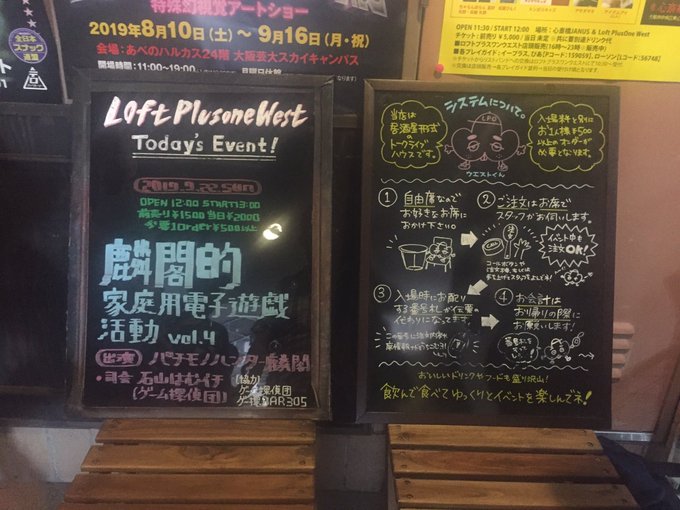 全日本
スナック
連盟
特殊幻視覚アートショー
2019年8月10日(土)～9月16日(月・祝)
会場：あべのハルカス24階 大阪芸大スカイキャンパス
開場時間：11:00～19:00
OPEN 11:30 / START 12:00 場所：心斎橋JANUS & Loft PlusOne West
LOft PlusoneWest
Today's Event!
2019.9.22.SUN
OPEN 12:00 START13:00
前売り¥1500 当日¥2000
必要1Order¥500以上
麟閣的
家庭用電子遊戯
活動 vol.4
出演 パチモノハンター麟閣
・司会 石山はむイチ
(ゲーム探偵団)
(協力)
ゲーム探偵団
ゲー探BAR305
システムについて。
当店は
居酒屋形式の
トークライブ
ハウスです。
LPO
ウエストくん
入場料と別に
お1人様¥500
以上のオーダーが
必要となります。
① 自由席なので
お好きなお席に
おかけ下さい。
② ご注文はお席で
スタッフがお伺いします。
イベント中も
注文OK!
③ 入場時にお配り
する番号札が伝票の
代わりになってます。
④ お会計は
お帰りの際に
お願いします!
おいしいドリンクやフードも盛り沢山!
飲んで食べてゆっくりとイベントを楽しんでネ!